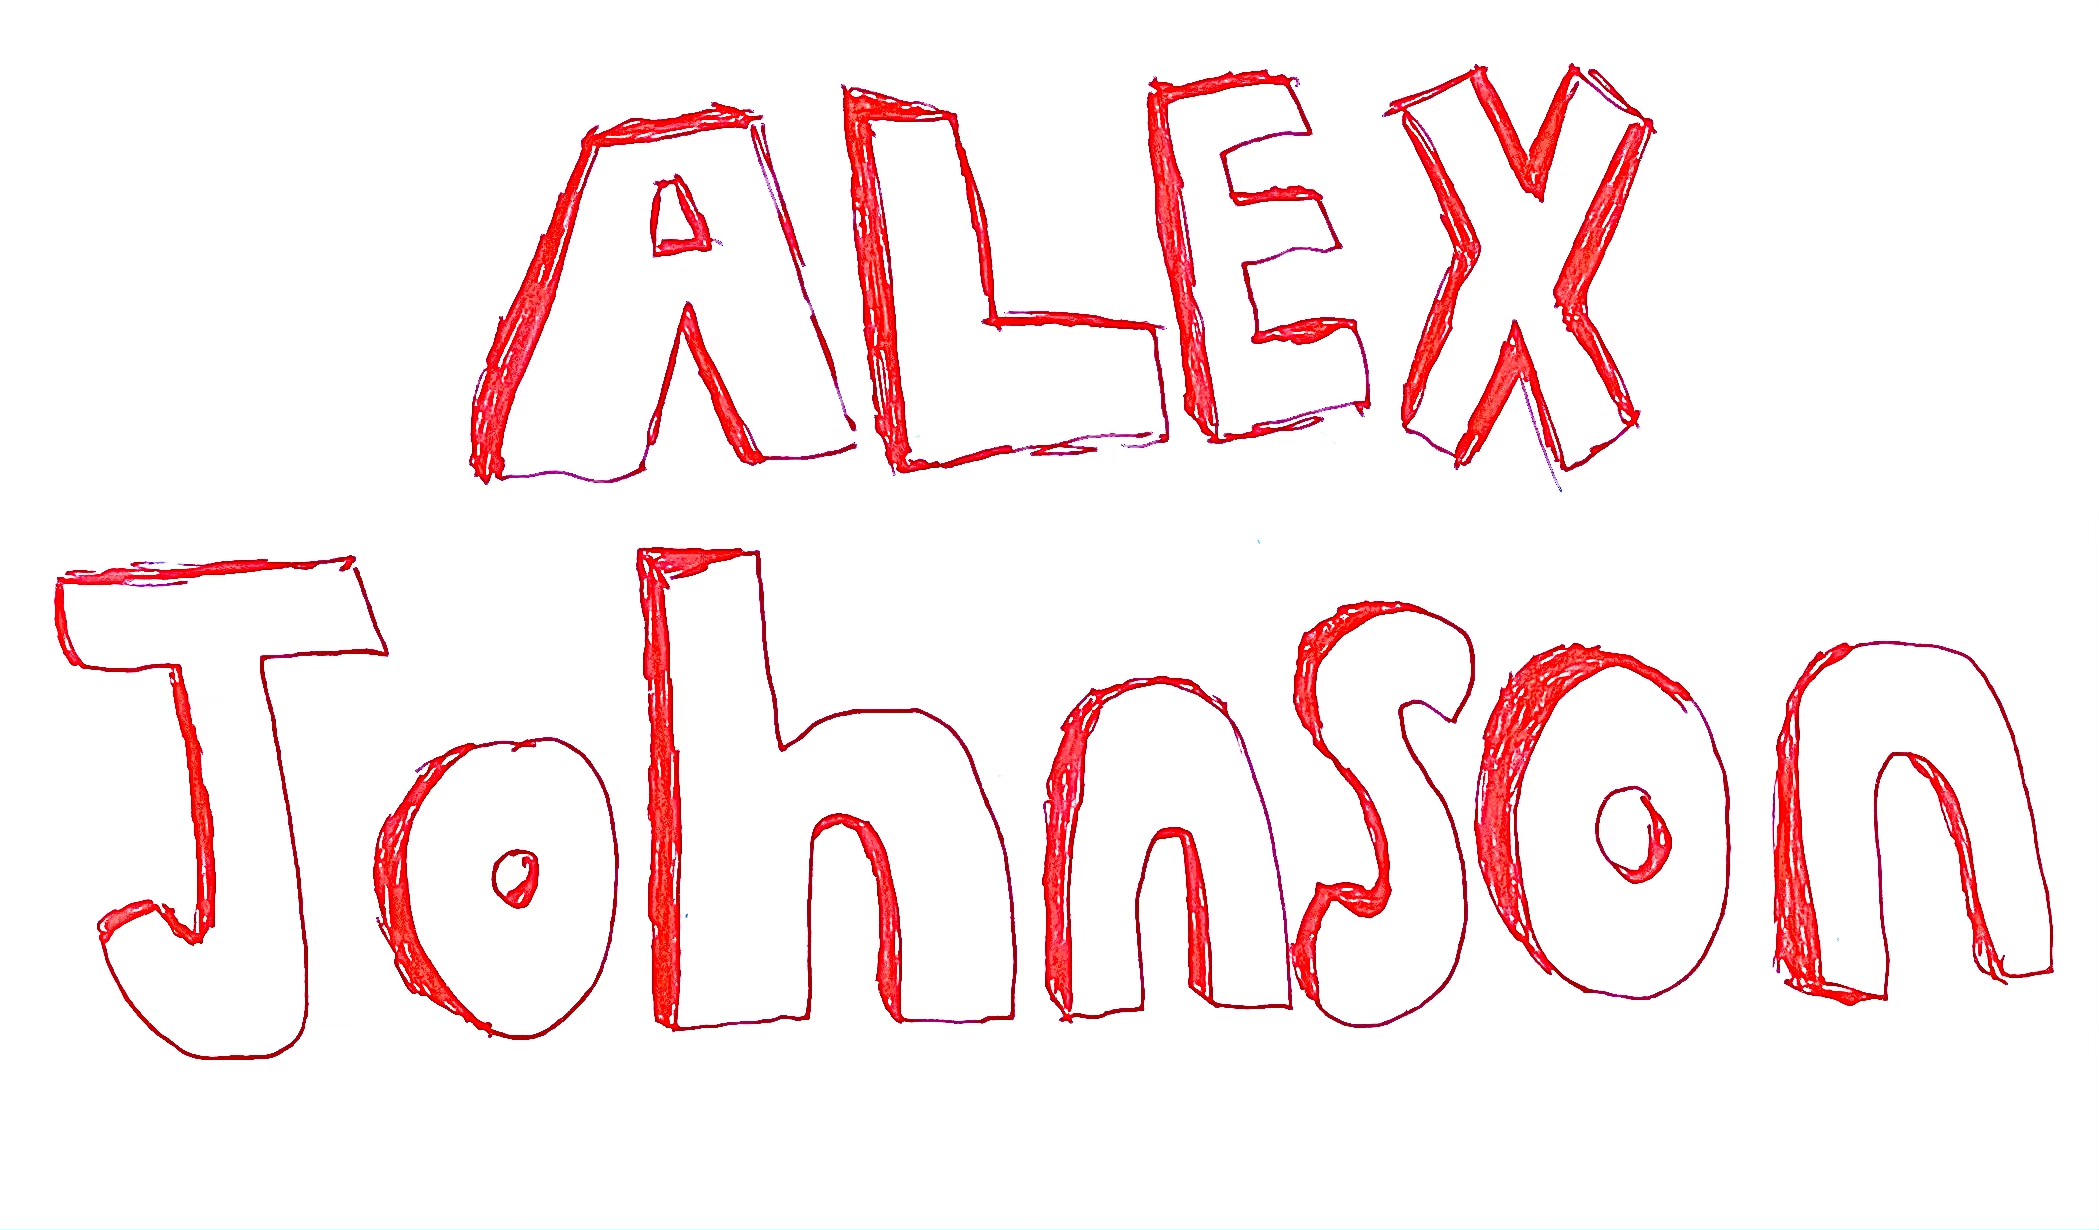 ALEX
Johnson